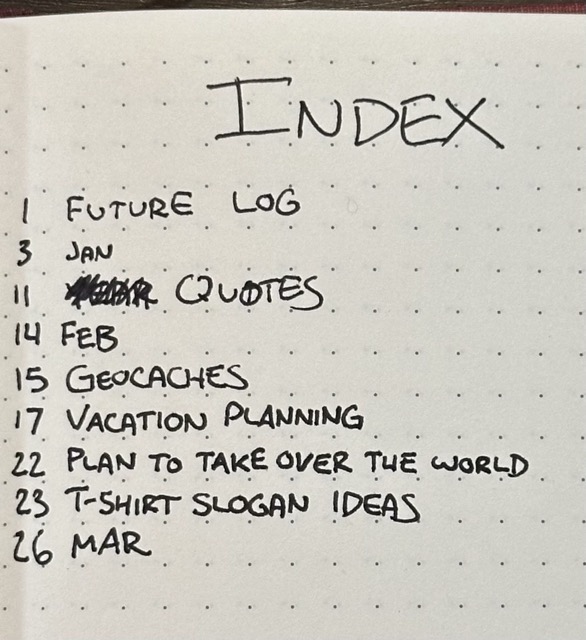 INDEX
1 FUTURE LOG
3 JAN
11 QUOTES
14 FEB
15 GEOCACHES
17 VACATION PLANNING
22 PLAN TO TAKE OVER THE WORLD
23 T-SHIRT SLOGAN IDEAS
26 MAR